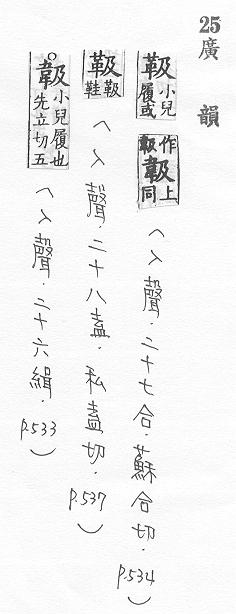 25廣韻
靸小兒履或作上同(入聲.二十七合.蘇合切.p.534)
靸靸鞋(入聲.二十八盍.私盍切.p.537)
小兒履也先立切五(入聲.二十六緝.p.533)